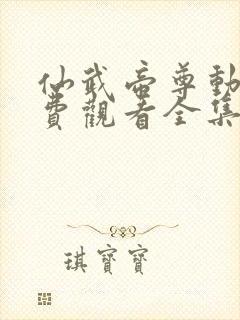 仙武帝尊動
費觀看全集
琪寶寶